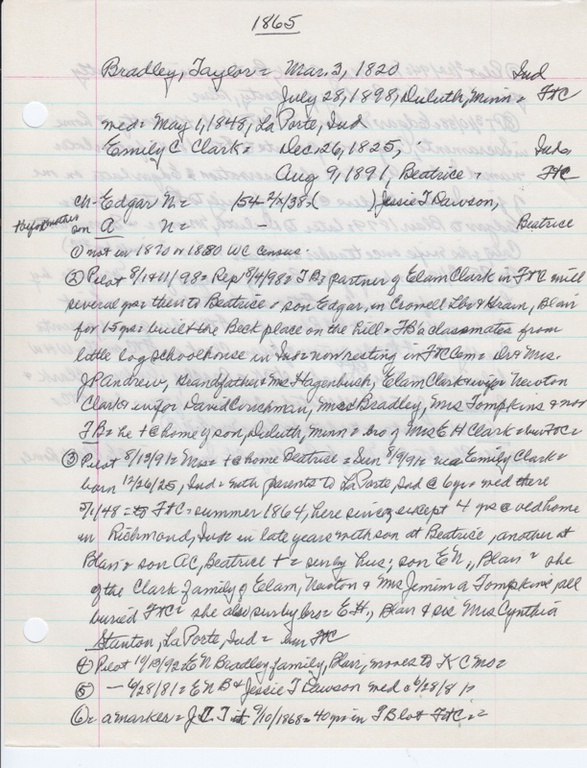 1865
Bradley, Taylor = Mar. 3, 1820 Ind
July 28, 1898, Duluth, Minn = FtC
med = May 1, 1848, La Porte, Ind
Emily C Clark = Dec. 26, 1825, Ind,
Aug 9, 1891, Beatrice = FtC
ch - Edgar N = /54- ) Jessie T Dawson,
son A N = - Beatrice
① not in 1870 or 1880 WC census
② Pilot 8/11/98 = Rep 8/4/98 = TB, partner of Elam Clark in FtC mill
several yrs = then to Beatrice = son Edgar, in Crowell Lbr & Grain, Blair
for 15 yrs = built the Beck place on the hill = TB's classmates from
little log schoolhouse in Ind = now resting in FtCem = Dr & Mrs.
JP Andrew, Grandfather & Ms Hagenbuch, Elam Clark & wife Newton
Clark & wife David Couchman, Mrs Bradley, Mrs Tompkins & now
TB = he + @ home of son, Duluth, Minn = bro of Mrs E H Clark = bur FtC =
③ Pilot 8/13/91 = Mrs = + @ home Beatrice = Sun 8/9/91 = nee Emily Clark =
born 12/26/25, Ind = with parents to La Porte, Ind @ 6 yr = med there
5/1/48 = to FtC = summer 1864, here since, except 4 yrs @ old home
in Richmond, Ind = in late years with son at Beatrice, another at
Blair = son AC, Beatrice + = surv by hus; son EN,, Blair = she
of the Clark family of Elam, Newton & Mrs Jemima Tompkins, all
buried FtC = she also surv by bro = E.H., Blair & sis Mrs Cynthia
Stanton, La Porte, Ind = bur FtC
④ Pilot 10/13/92 = EN Bradley family, Blair, moves to KC Mo =
⑤ - 6/28/81 = EN B & Jessie T Dawson med 6/28/81
⑥ = a marker = 9/10/1868 = 40 yrs in TB lot FtC =